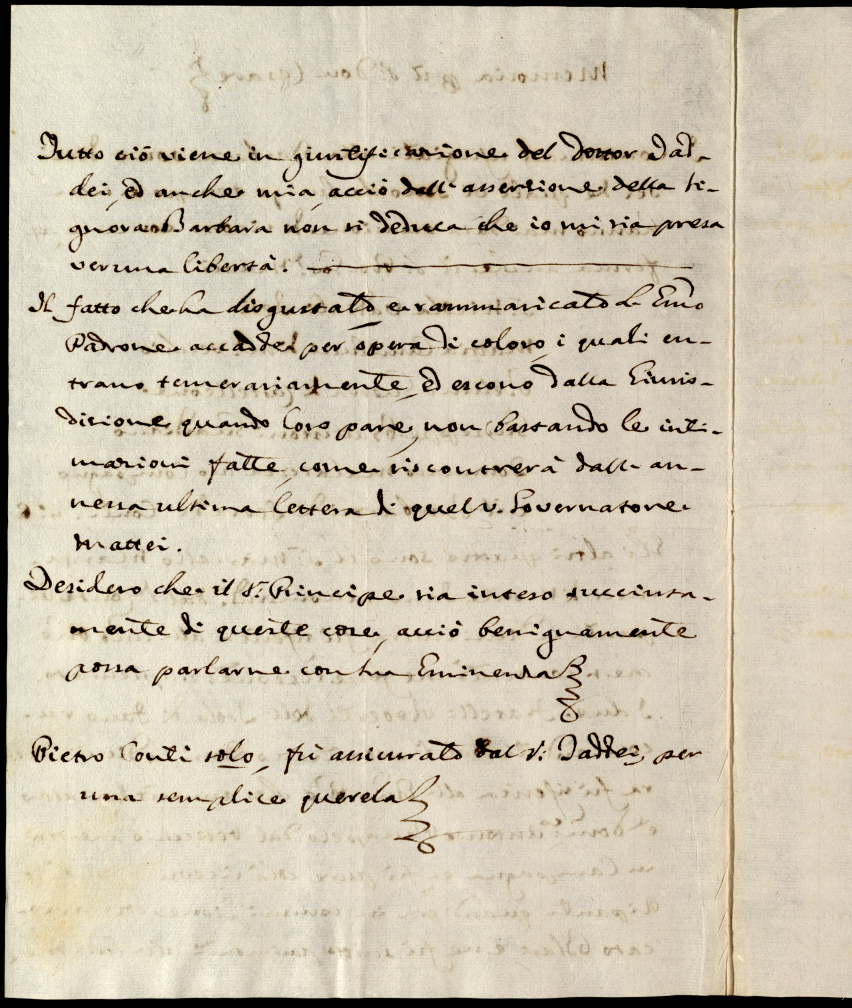 Tutto ciò viene in giustificazione del Dottor Dad-
dei, ed anche mia, acciò dall'asserzione della Si-
gnora Barbara non si deduca che io mi sia presa
veruna libertà.
Il fatto che ha disgustato e rammaricato l'Emo
Padrone accadde per opera di coloro, i quali en-
trano temerariamente, ed escono dalla Giuris-
dizione quando loro pare, non bastando le inti-
mazioni fatte, come riscontrerà dall'an-
nessa ultima lettera di quel v. Governatore
Mattei.
Desidero che il S.r Principe sia inteso succinta-
mente di queste cose, acciò benignamente
possa parlarne con Sua Eminenza
Pietro Conti solo, fù assicurato dal S.r Daddei, per
una semplice querela